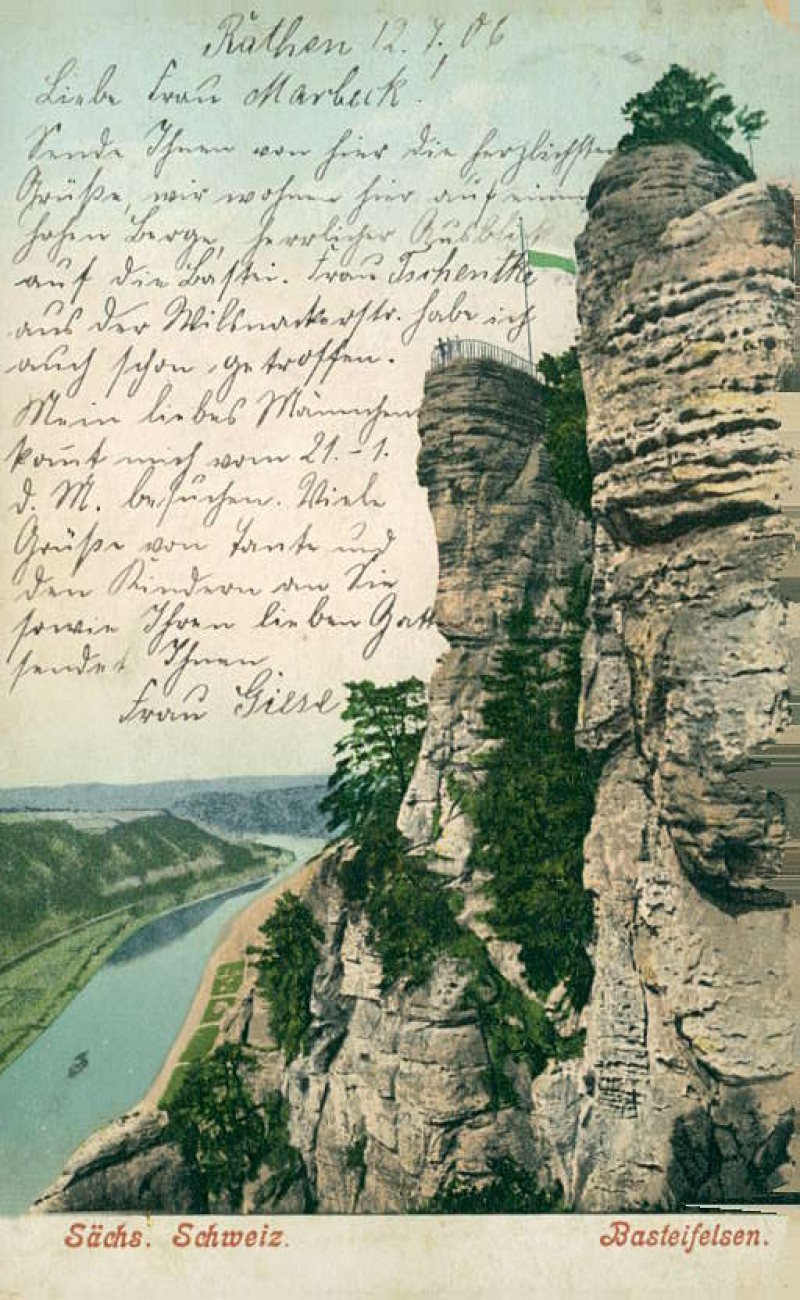 Rathen 12.7.06
Liebe Frau Marbeck!
Sende Ihnen von hier die herzlichsten
Grüße, wir wohnen hier auf einem
hohen Berge, herrlicher Ausblick
auf die Bastei. Frau Tschentke
aus der Wilsnackerstr. habe ich
auch schon getroffen.
Mein liebes Männchen
kom̄t mich vom 21. - 1.
d. M. besuchen. Viele
Grüße von Tante und
den Kindern an Sie
sowie Ihren lieben Gatt
sendet Ihnen
Frau Giese
Sächs. Schweiz.
Basteifelsen.